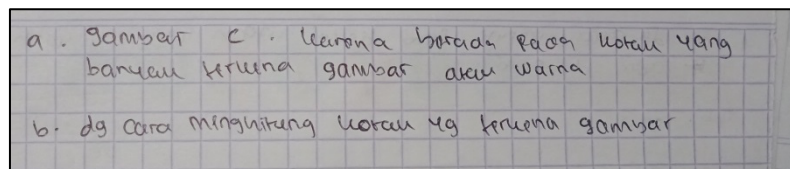 a. gambar c. karena berada pada kotak yang
banyak terkena gambar atau warna
b. dg cara menghitung kotak yg terkena gambar